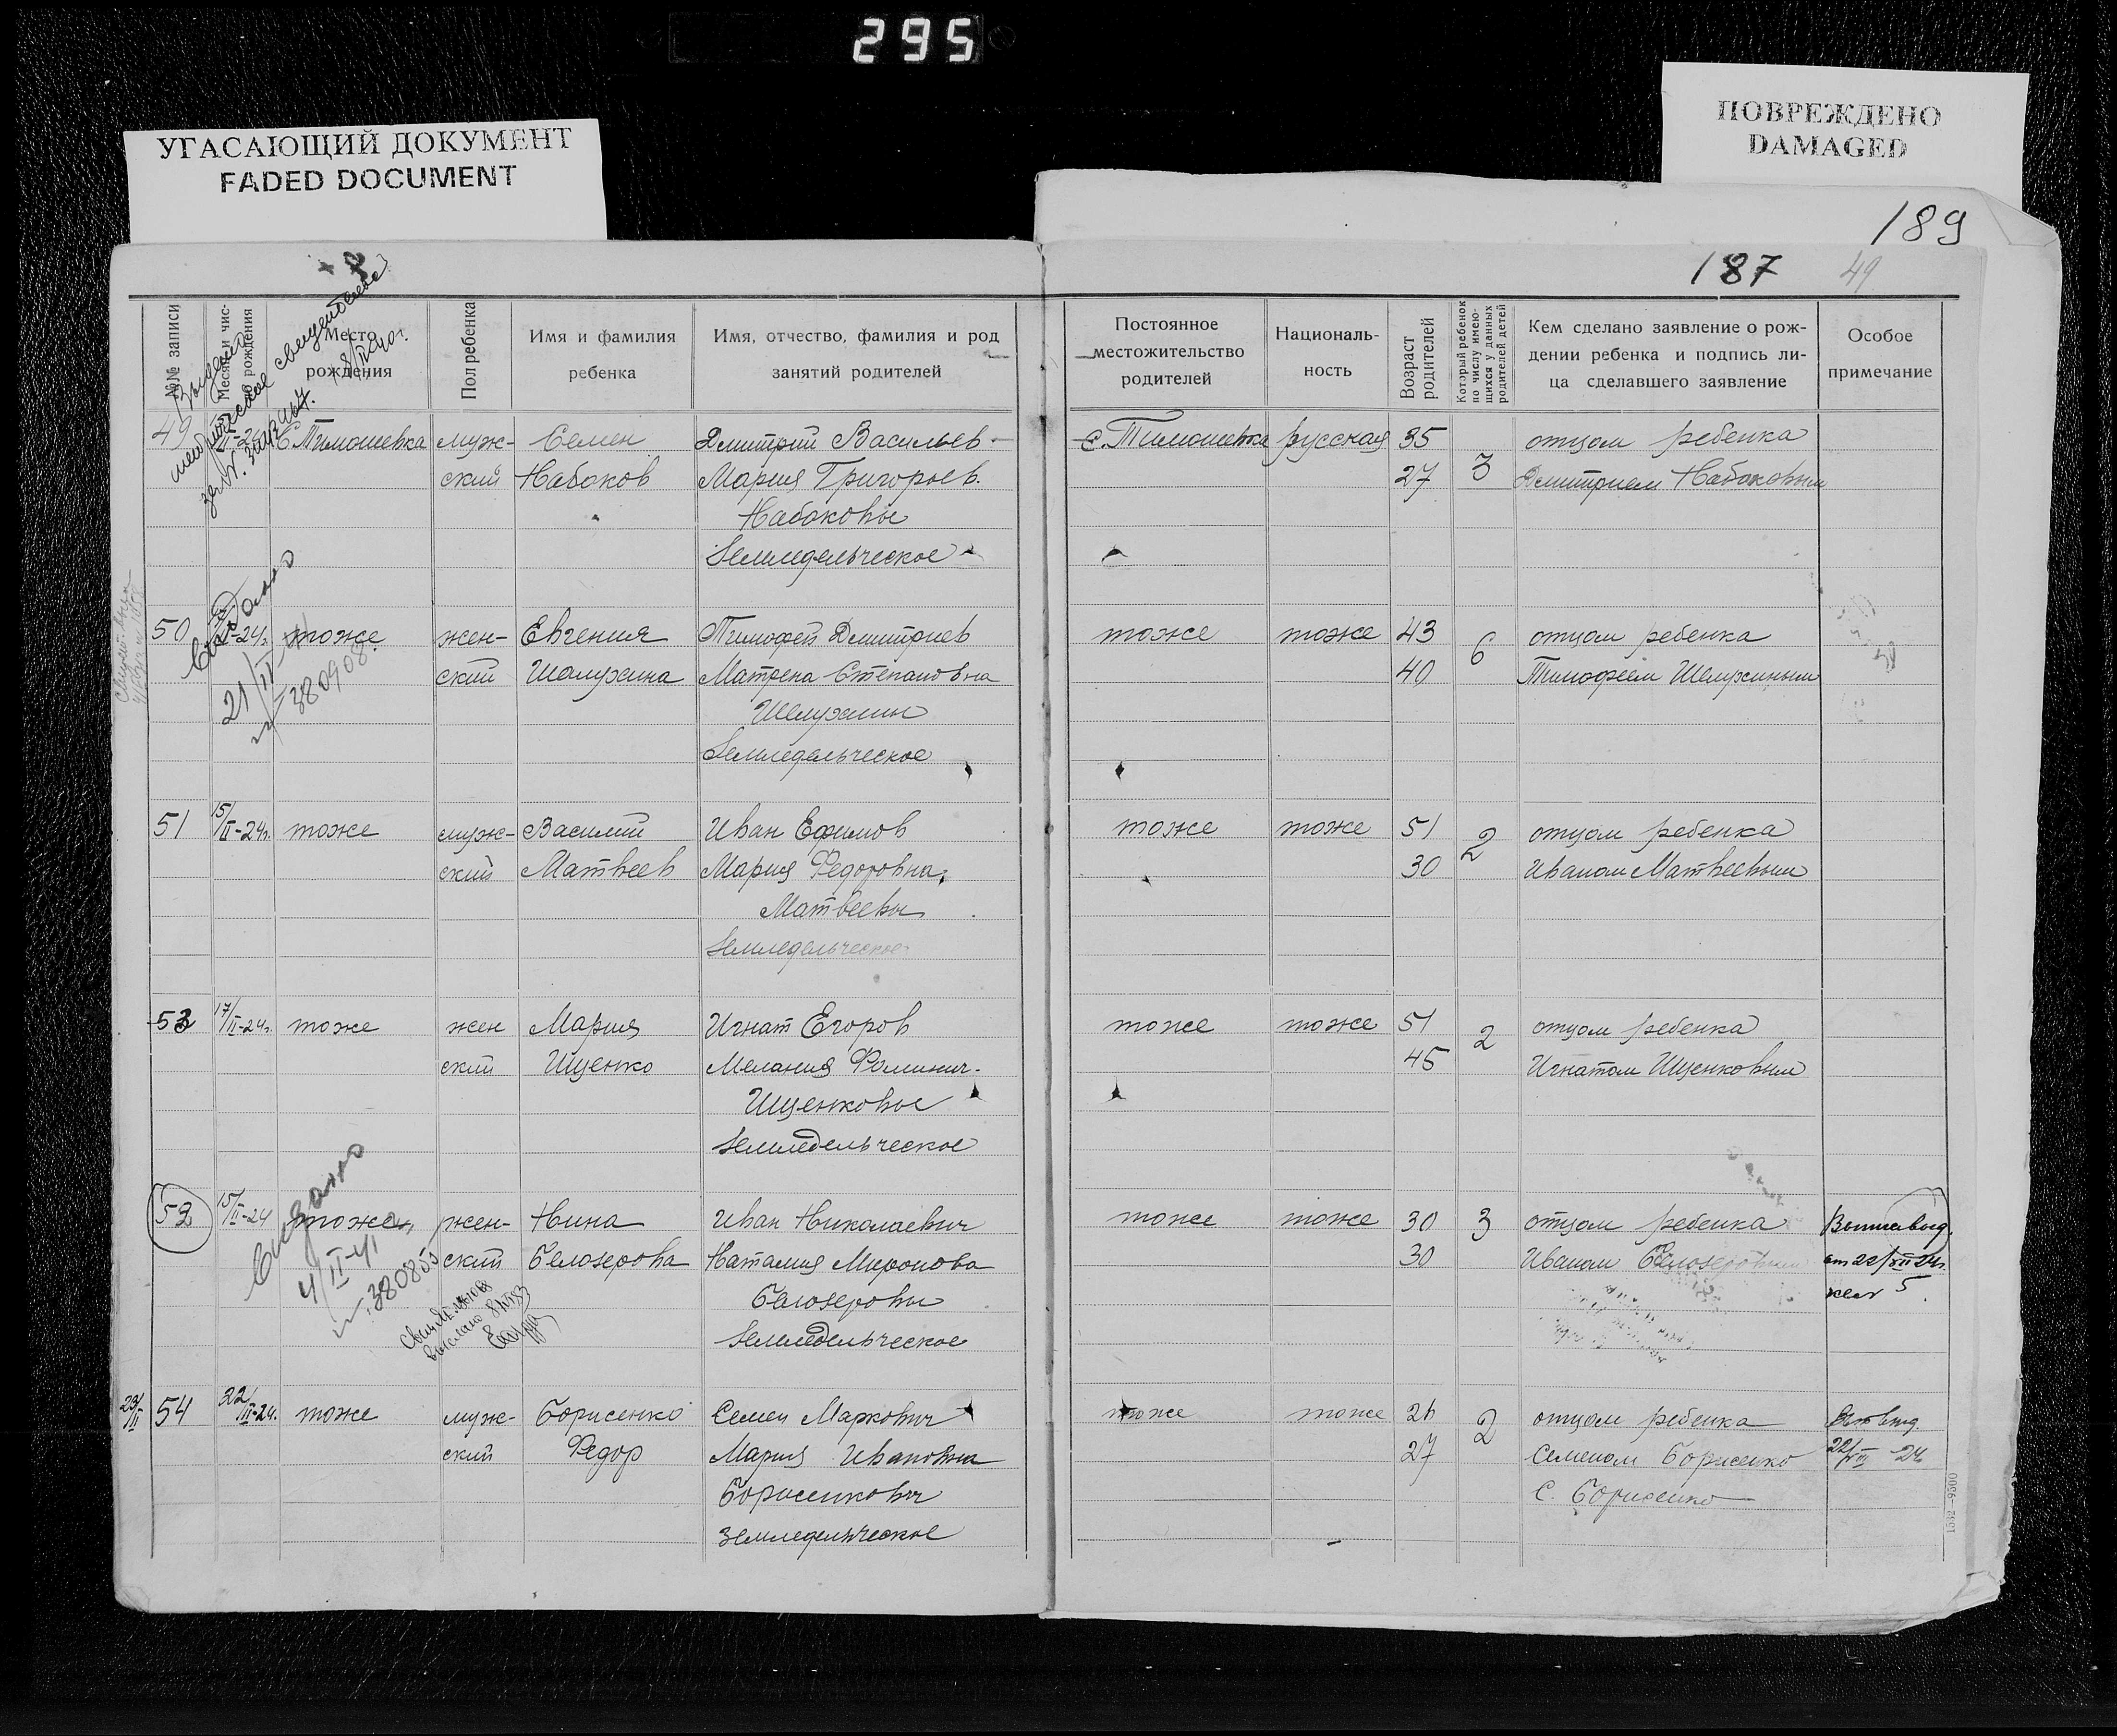 295
УГАСАЮЩИЙ ДОКУМЕНТ
FADED DOCUMENT
ПОВРЕЖДЕНО
DAMAGED
189
187 49
№№ записи
Месяц и чис-
ло рождения
Место
рождения
Пол ребенка
Имя и фамилия
ребенка
Имя, отчество, фамилия и род
занятий родителей
Постоянное
местожительство
родителей
Националь-
ность
Возраст
родителей
Который ребенок
по числу имею-
щихся у данных
родителей детей
Кем сделано заявление о рож-
дении ребенка и подпись ли-
ца сделавшего заявление
Особое
примечание
49 С. Тимошевка муж- Семен Дмитрий Васильев С. Тимошевка русская 35 отцом ребенка
ский Набоков Мария Григорьев. 27 3 Дмитрием Набоковым
Набоковы
Земледельческое
50 II-24г. тоже жен- Евгения Тимофей Дмитриев тоже тоже 43 6 отцом ребенка
ский Шелухина Матрена Степановна 40 Тимофеем Шелухиным
Шелухины
Земледельческое
Выдано
21/II-41
№ 380908
51 15/II-24г. тоже муж- Василий Иван Ефимов тоже тоже 51 2 отцом ребенка
ский Матвеев Мария Федоровна 30 Иваном Матвеевым
Матвеевы
Земледельческое
52 17/II-24г. тоже жен Мария Игнат Егоров тоже тоже 51 2 отцом ребенка
ский Ищенко Мелания Фоминич. 45 Игнатом Ищенковым
Ищенковы
Земледельческое
53 15/II-24 тоже жен- Нина Иван Николаевич тоже тоже 30 3 отцом ребенка
ский Белозерова Наталия Миронова 30 Иваном Белозеровым
Белозеровы
Земледельческое
Выдано
4/II-41
№ 380855
23/II 54 22/II-24. тоже муж- Борисенко Семен Маркович тоже тоже 26 2 отцом ребенка
ский Федор Мария Ивановна 27 Семеном Борисенко
Борисенкович С. Борисенко
Земледельческое
1532—9500